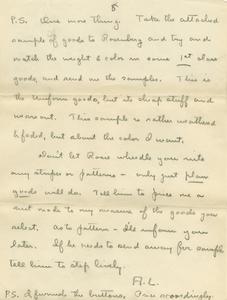 8
P.S. One more thing: Take the attached
sample of goods to Rosenberg and try and
match the weight & color in some 1st class
goods, and send me the samples. This is
the uniform goods, but its cheap stuff and
wears out. This sample is rather weathered
& faded, but about the color I want.
Don't let Rose wheedle you into
any stripes or patterns - only just plain
goods will do. Tell him to price me a
suit made to my measure of the goods you
select. As to pattern - I'll inform you
later. If he needs to send away for sample
tell him to step lively.
A.L.
P.S. I furnish the buttons, Price accordingly.